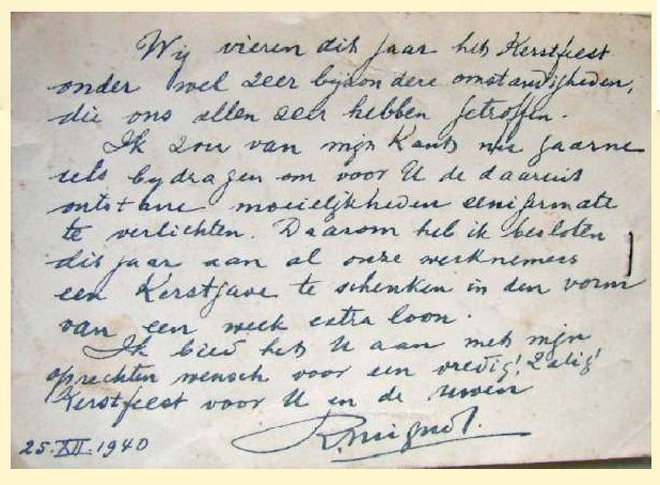 Wij vieren dit jaar het Kerstfeest
onder wel zeer bijzondere omstandigheden,
die ons allen zeer hebben getroffen.
Ik zou van mijn Kant nu gaarne
iets bydragen om voor U de daaruit
ontstane moeilijkheden enigermate
te verlichten. Daarom heb ik besloten
dit jaar aan al onze werknemers
een Kerstgave te schenken in den vorm
van een week extra loon.
Ik bied het U aan met mijn
oprechten wensch voor een vredig! Zalig!
Kerstfeest voor U en de uwen
R. Mignot.
25.XII.1940